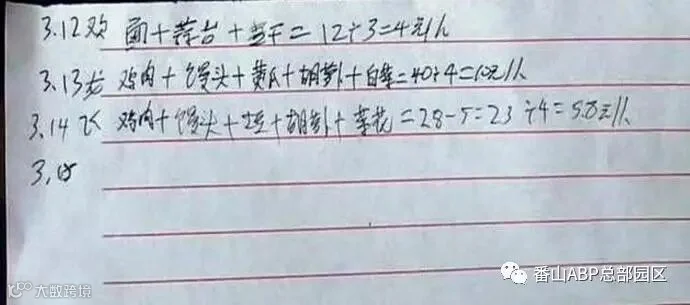 3.12欢 面+蒜台+芸干=12÷3=4元/人
3.13龙 鸡肉+馒头+黄瓜+胡萝卜+白菜=40÷4=10元/人
3.14飞 鸡肉+馒头+土豆+胡萝卜+菜花=28-5=23÷4=5.8元/人
3,15
大数跨境
番山ABP总部园区